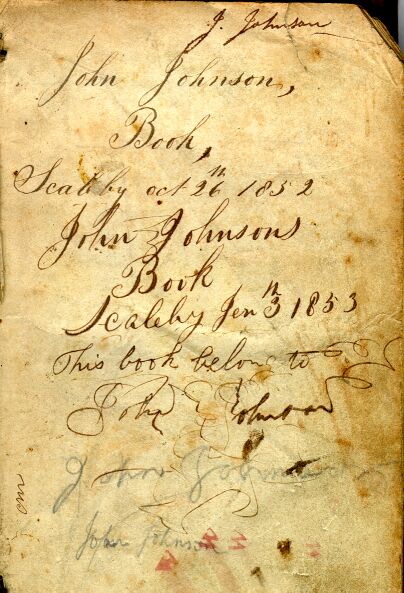 J. Johnson
John Johnson,
Book,
Scaleby oct 26th 1852
John Johnsons
Book
Scaleby Jen 3 1853
This book belong to
John Johnson
John Johnson
John Johnson